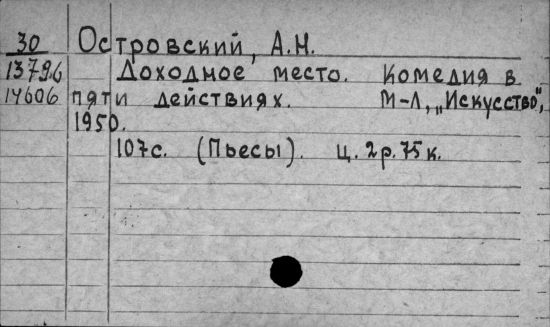 30 Островский, А.Н.
13796 Доходное место. Комедия в
14606 пяти действиях. М-Л, „Искусство",
1950.
107с. (Пьесы). ц. 2р. 75к.